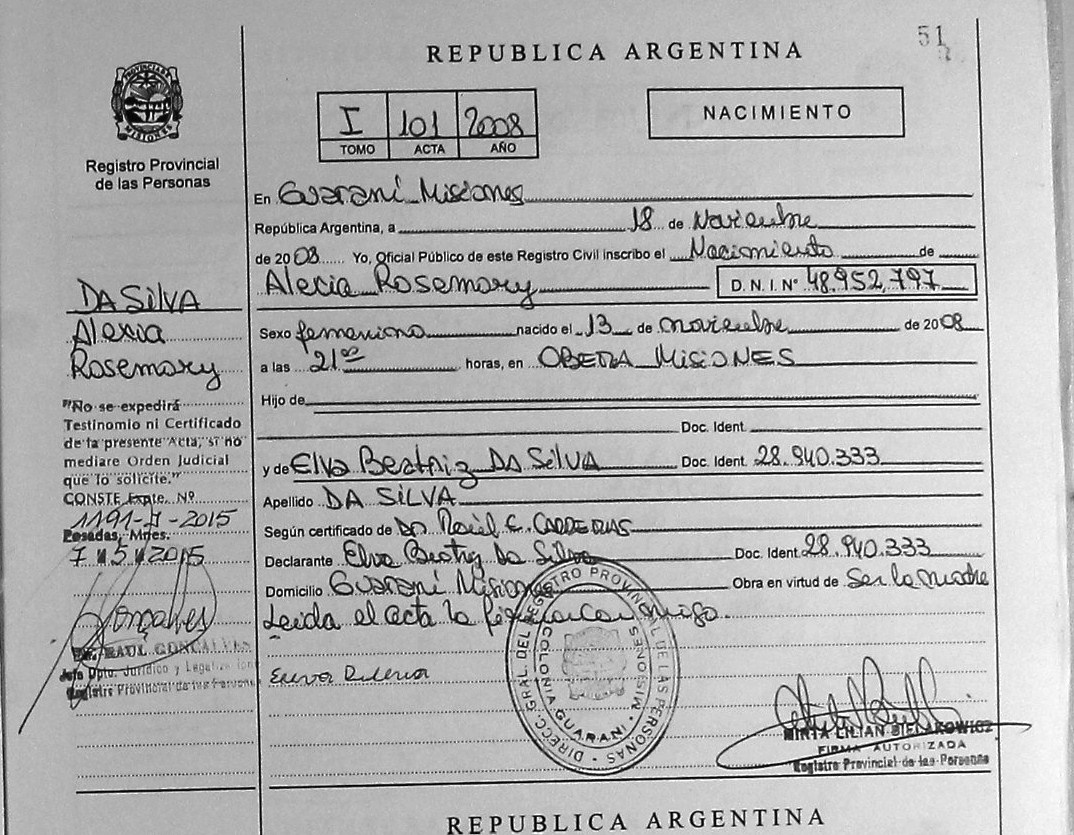 51
REPUBLICA ARGENTINA
I 101 2008
TOMO ACTA AÑO
NACIMIENTO
PROVINCIA DE MISIONES
Registro Provincial
de las Personas
DA SilVA
Alexia
Rosemary
"No se expedirá
Testimonio ni Certificado
de la presente Acta, si no
mediare Orden Judicial
que lo solicite."
CONSTE Expte. Nº
1191-7-2015
Posadas, Mnes.
7 5 2015
Gonçalves
Dr. RAUL GONCALVES
Jefe Dpto. Jurídico y Legalizac
Registro Provincial de las Personas
En Guaraní Misiones
República Argentina, a 18 de Noviembre
de 2008 Yo, Oficial Público de este Registro Civil inscribo el Nacimiento de
Alecia Rosemary D.N.I. Nº 48.952.797
Sexo femenino nacido el 13 de noviembre de 2008
a las 21 00 horas, en OBERA MISIONES
Hijo de
Doc. Ident.
y de Elva Beatriz DA SilVA Doc. Ident. 28.940.333
Apellido DA SILVA
Según certificado de Dr. Raúl E. CARDENAS
Declarante Elva Beatriz Da Silva Doc. Ident. 28.940.333
Domicilio Guaraní Misiones Obra en virtud de Ser la madre
Leida el acta la firma conmigo.
DIREC. GRAL. DEL REGISTRO PROVINCIAL DE LAS PERSONAS
COLONIA GUARANI - MISIONES
MIRTA LILIAN BIELAKOWICZ
FIRMA AUTORIZADA
Registro Provincial de las Personas
REPUBLICA ARGENTINA